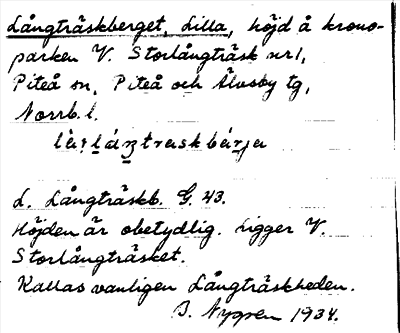 Långträskberget, Lilla, höjd å krono-
parken V. Storlångträsk nr 1,
Piteå sn, Piteå och Älvsby tg,
Norrb. l.
L. Långträskb. G. 43.
Höjden är obetydlig. Ligger V.
Storlångträsket.
Kallas vanligen Långträskheden.
B. Nygren 1934.